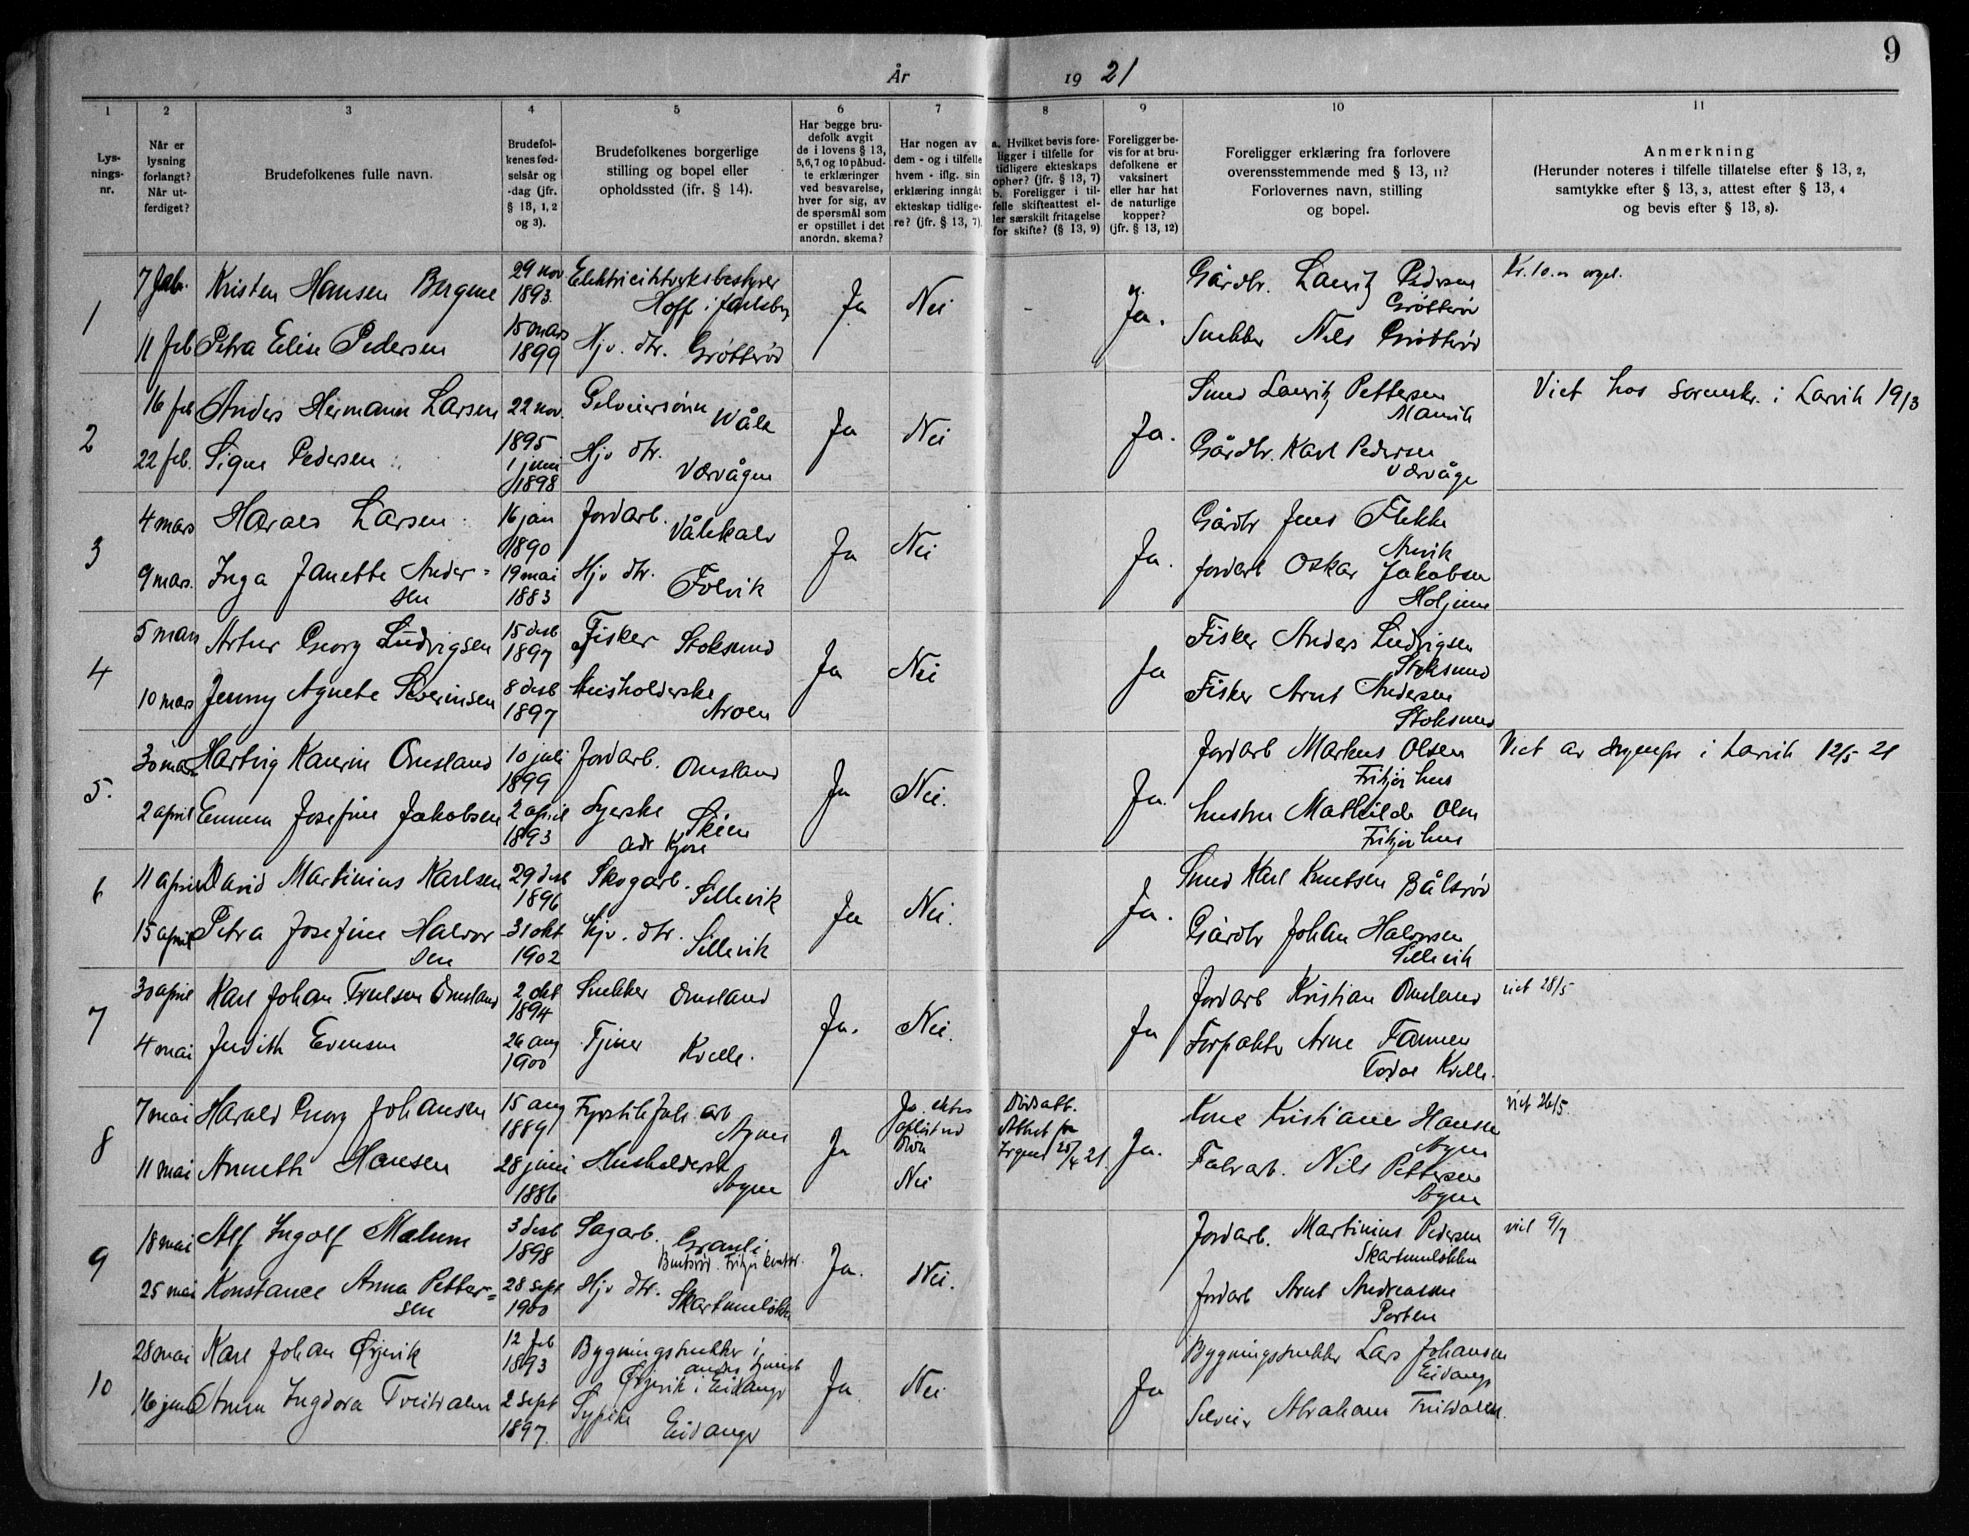 9
År 1921
1 2 3 4 5 6 7 8 9 10 11
Lys-
nings-
nr.
Når er
lysning
forlangt?
Når ut-
ferdiget?
Brudefolkenes fulle navn.
Brudefol-
kenes fød-
selsår og
-dag (jfr.
§ 13, 1, 2
og 3).
Brudefolkenes borgerlige
stilling og bopel eller
opholdssted (jfr. § 14).
Har begge bru-
defolk avgit
de i lovens § 13,
5,6,7 og 10 påbud-
te erklæringer
ved besvarelse,
hver for sig, av
de spørsmål som
er opstillet i det
anordn. skema?
Har nogen av
dem - og i tilfelle
hvem - iflg. sin
erklæring inngått
ekteskap tidlige-
re? (jfr. § 13, 7).
a. Hvilket bevis fore-
ligger i tilfelle for
tidligere ekteskaps
ophør? (jfr. § 13, 7)
b. Foreligger i til-
felle skifteattest el-
ler særskilt fritagelse
for skifte? (§ 13, 9)
Foreligger be-
vis for at bru-
defolkene er
vaksinert
eller har hat
de naturlige
kopper?
(jfr. § 13, 12)
Foreligger erklæring fra forlovere
overensstemmende med § 13, 11?
Forlovernes navn, stilling
og bopel.
Anmerkning
(Herunder noteres i tilfelle tillatelse efter § 13, 2,
samtykke efter § 13, 3, attest efter § 13, 4
og bevis efter § 13, 8).
1
7 feb.
11 feb
Kristen Hansen Bergene
Petra Elise Pedersen
29 nov
1893.
15 mars
1899
Hoff i Jarlsberg
Hjv. dtr. Grøtterød
Ja
Nei
-
Ja.
Gårdbr. Lauritz Pedersen
Grøtterød
Snekker Nils Grøtterød
2
16 feb
22 feb.
Anders Hermann Larsen
Signe Pedersen
22 nov.
1895
1 juni
1898
Våle
Hjv. dtr.
Værvågen
Ja
Nei
Ja.
Smed Lauritz Pettersen
Gårdbr. Karl Pedersen
Værvåge
Viet hos sorenskr. i Larvik 19/3
3
4 mars
9 mars.
Harald Larsen
Inga Janette Ander-
sen
16 jan
1890
19 mai
1883
Jordarb.
Hjv dtr.
Ja
Nei
Ja.
Gårdbr Jens Flekke
Jordarb Oskar Jakobsen
4
5 mars
10 mars
Artur Georg Ludvigsen
Jenny Agnete Severinsen
15 desb
1897
8 desb
1897
Fisker Stoksund
Husholderske
Aroen
Ja
Nei
Ja
Fisker Anders Ludvigsen
Stoksund
Fisker Arnt Andersen
Stoksund
5.
30 mars
2 april
Hartvig Kaurin Omsland
Emma Josefine Jakobsen
10 juli
1899
2 april
1893
Jordarb. Omsland
Syerske Skien
adr Kjose
Ja
Nei.
Ja.
Jordarb Markus Olsen
hustru Mathilde Olsen
Viet av i Larvik 12/5 21
6
11 april
15 april
David Martinius Karlsen
Petra Josefine Halvor
sen
29 desb
1896
31 okt
1902
Skogarb. Sillevik
Hjv. dtr. Sillevik
Ja
Nei.
Ja.
Smed Karl Knutsen Bålsrød
Gårdbr Johan Halvorsen
Sillevik
7
30 april
4 mai
Karl Johan Trulsen Omsland
Judith Evensen
2 okt
1894
26 aug
1900
Snekker Omsland
Tjener Kvelle.
Ja.
Nei.
Ja
Jordarb Kristian Omsland
Forpakter Arne
Kvelle.
viet 28/5
8
7 mai
11 mai
Harald Georg Johansen
Annette Hansen
15 aug
1889
28 juni
1886
Agnes
Husholderske
Agnes
Ja
Nei
Ja.
Kone Kristiane Hansen
Agnes
Fabrarb. Nils Pettersen
Agnes
viet 26/5.
9
18 mai
25 mai
Alf Ingolf Malum
Konstance Anna Petter-
sen
3 desb
1898
28 sept
1900
Sagarb. Granli
Hjv dtr.
Ja.
Nei.
Jordarb. Martinius Pedersen
Jordarb Arnt Andreassen
Porten
viet 9/7
10
28 mai
16 juni
Karl Johan Ørjevik
Anna Ingdora Treidalen
12 feb
1893
2 sept
1897.
Bygningssnekker i
Ørjevik i Eidanger
Sypike
Eidanger
Ja
Nei
Ja
Bygningssnekker Lars Johansen
Eidanger
Selveier Abraham Treidalen.